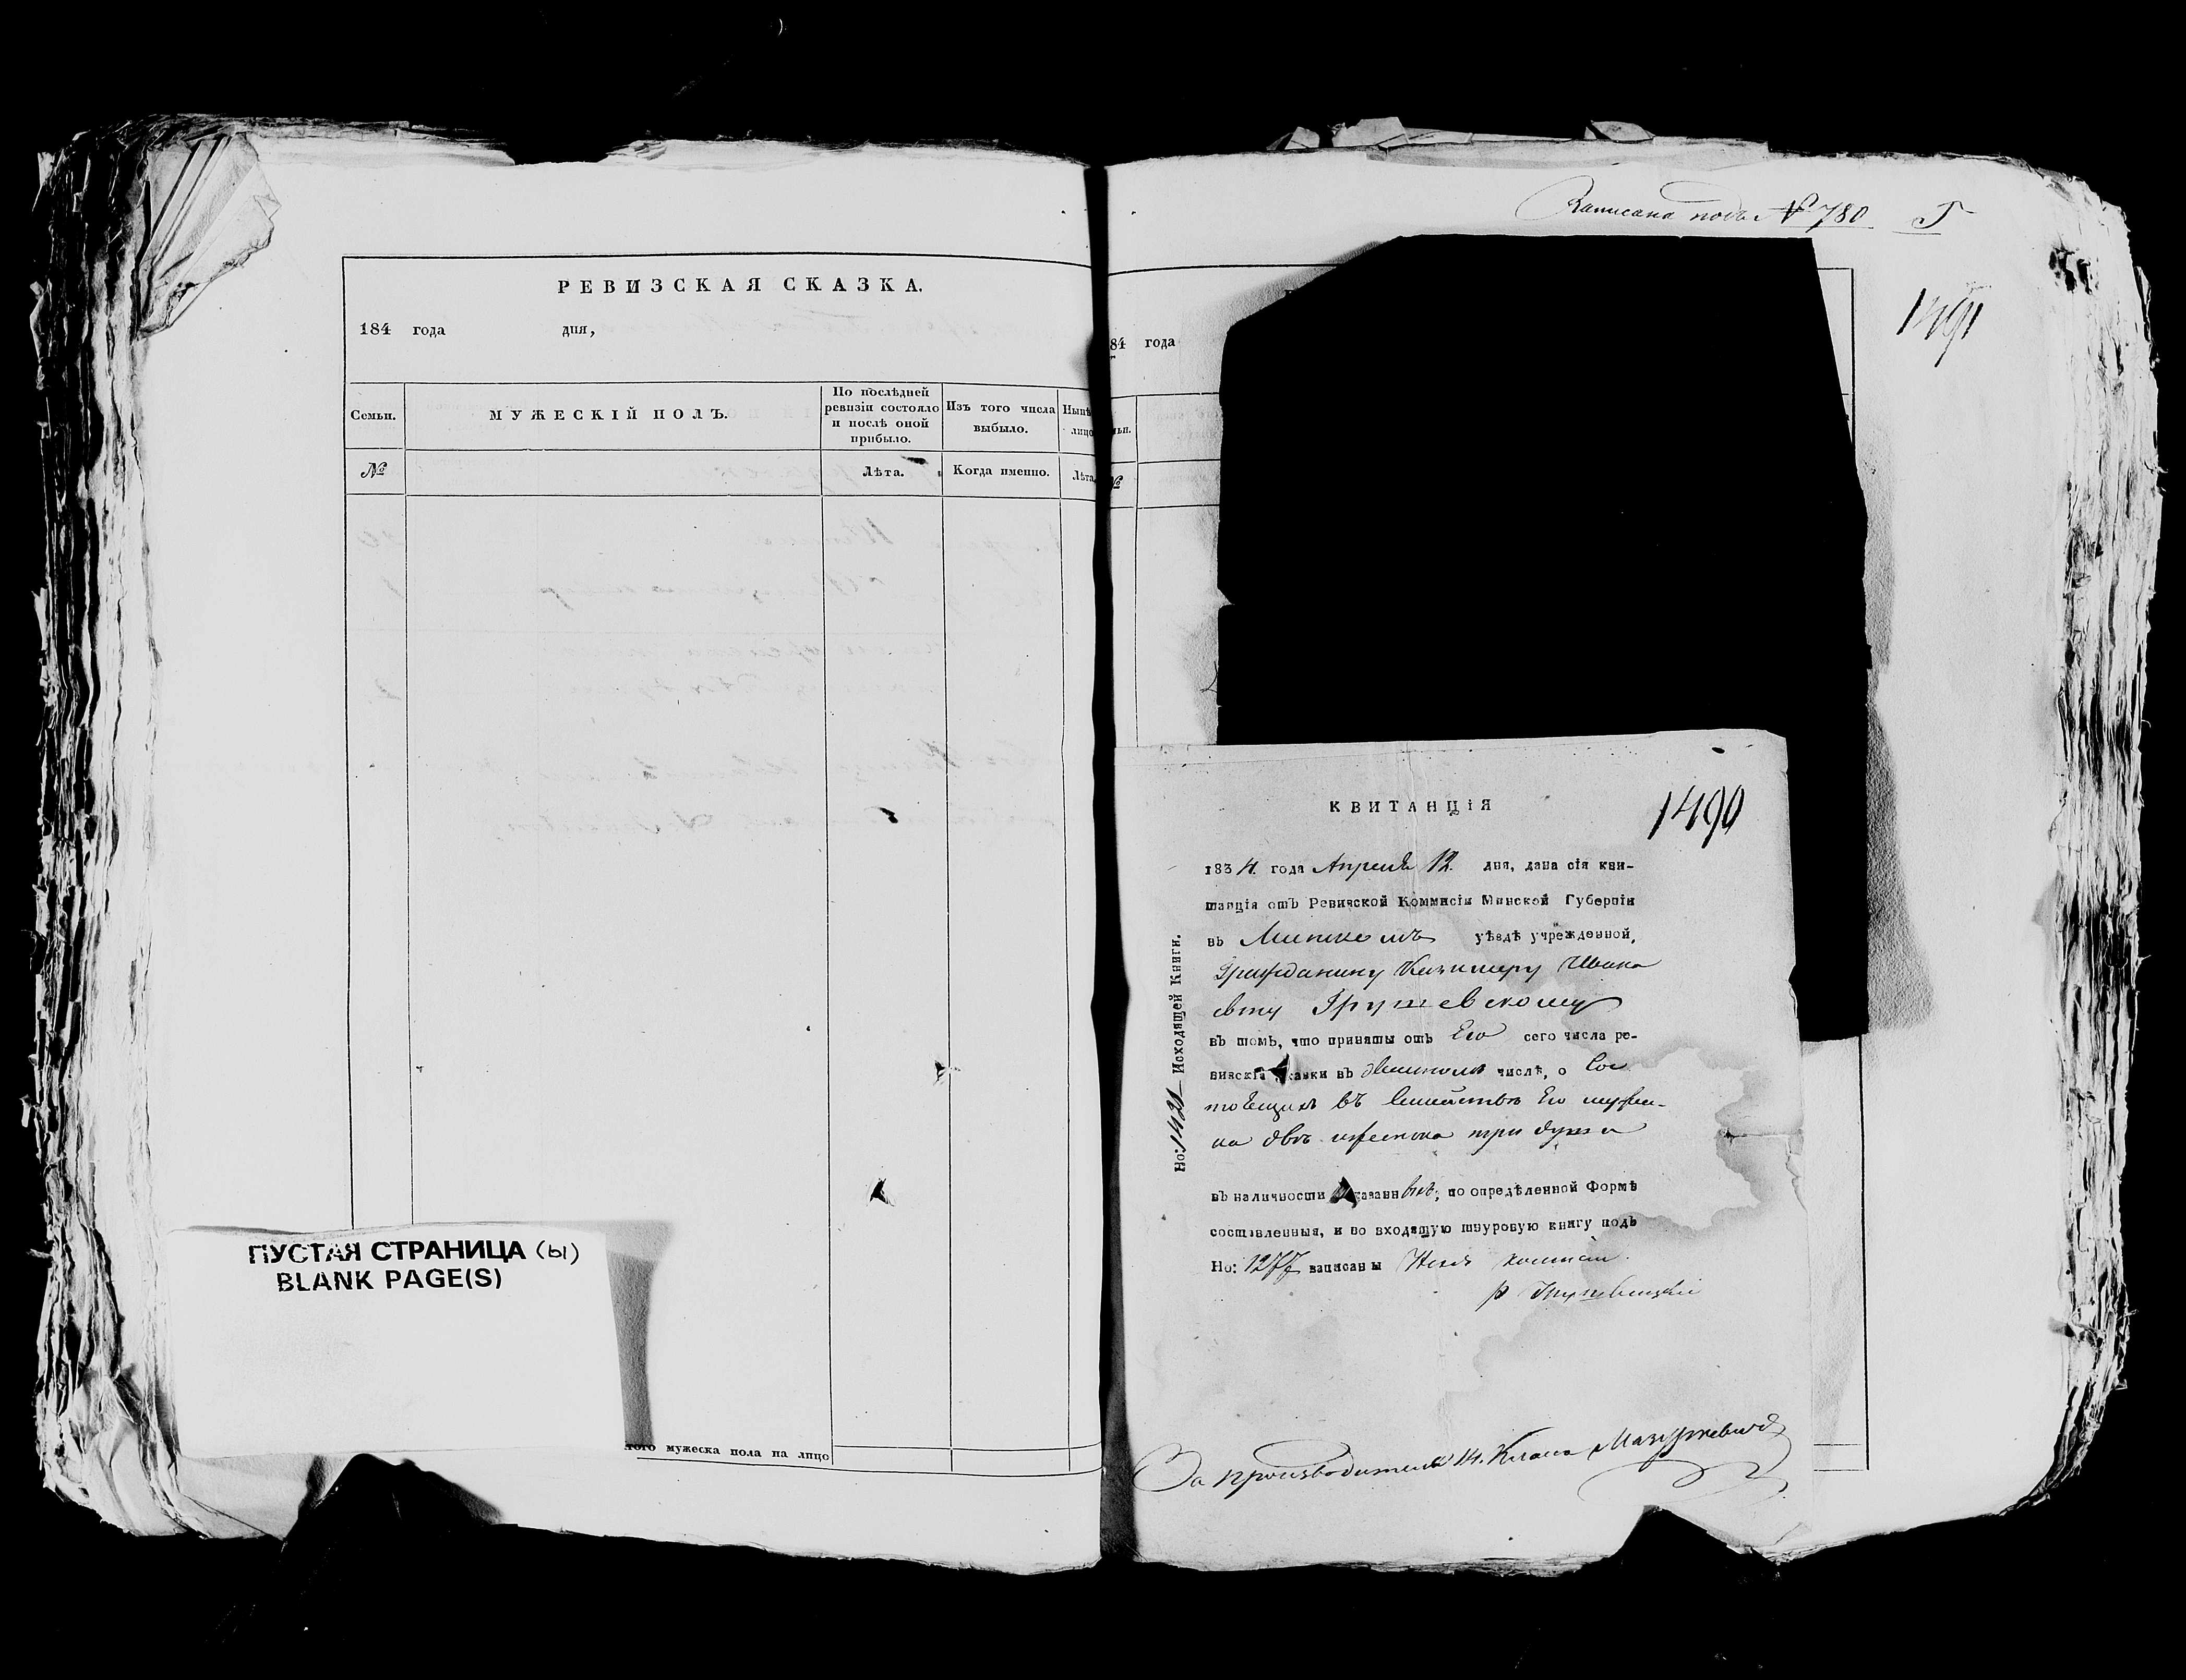 РЕВИЗСКАЯ СКАЗКА.
184 года дня,
Семьи.
МУЖЕСКІЙ ПОЛЪ.
По послѣдней ревизіи состояло и послѣ оной прибыло.
Изъ того числа выбыло.
Нынѣ
лицо
№
Лѣта.
Когда именно.
Лѣта
ПУСТАЯ СТРАНИЦА (Ы)
BLANK PAGE(S)
того мужеска пола на лицо
Записана подъ № 780
1491
84 года
ьи.
№
КВИТАНЦІЯ
1490
1834 года Апреля 12 дня, дана сія кви-
танція отъ Ревизской Коммисіи Минской Губерніи
въ Минскомъ уѣздѣ учрежденной,
Гражданину Казимеру Ивано
вту Грушевскому
въ томъ, что приняты отъ Его сего числа ре-
визскія сказки въ числѣ, о Сос
тоящихъ въ Семействѣ Его мужес-
ка двѣ женска три души
въ наличности показанныхъ, по опредѣленной Формѣ
составленныя, и во входящую шнуровую книгу подъ
Но: 1277 записаны
Но: 1431 Исходящей Книги.
За производителя 14. Класса Мазуркевичъ